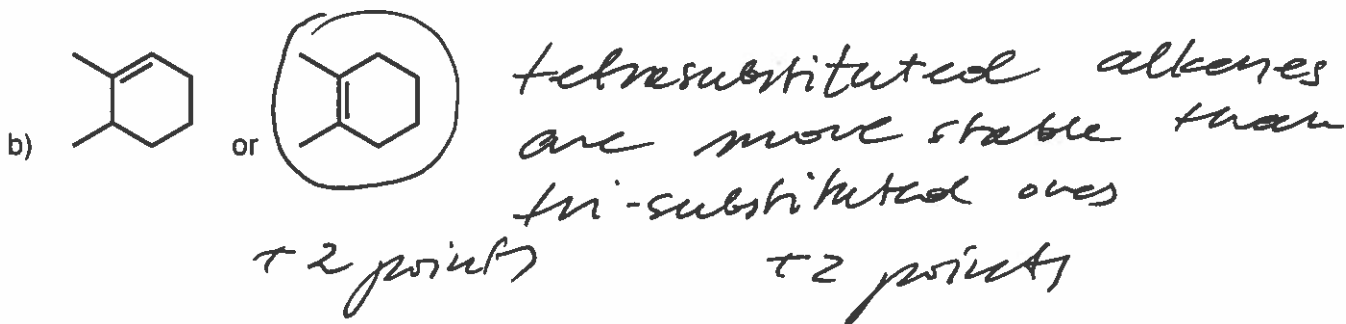 tetrasubstituted alkenes
are more stable than
b) or
tri-substituted ones
+2 points +2 points